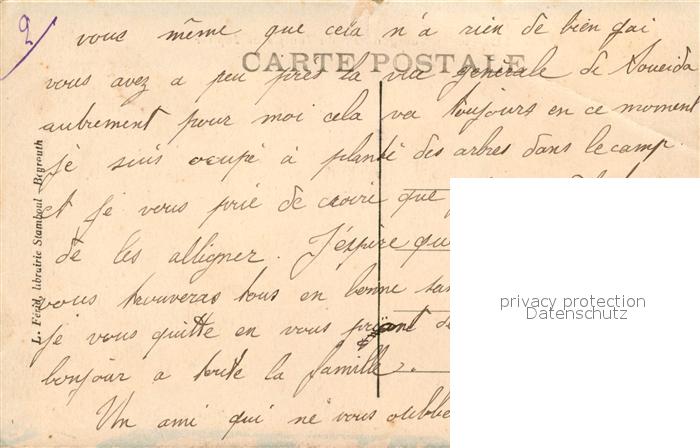 2
vous même que cela n'a rien de bien gai
CARTE POSTALE
vous avez a peu près la vue générale de Soueida
autrement pour moi cela va toujours en ce moment
je suis ocupé à planté des arbres dans le camp
et je vous prie de croire que
de les alligner. J'éspère qu
vous trouveras tous en bonne san
je vous quitte en vous priant de
bonjour a toute la famille.
Un ami qui ne vous oublie
L. Férid, librairie Stamboul - Beyrouth
privacy protection
Datenschutz